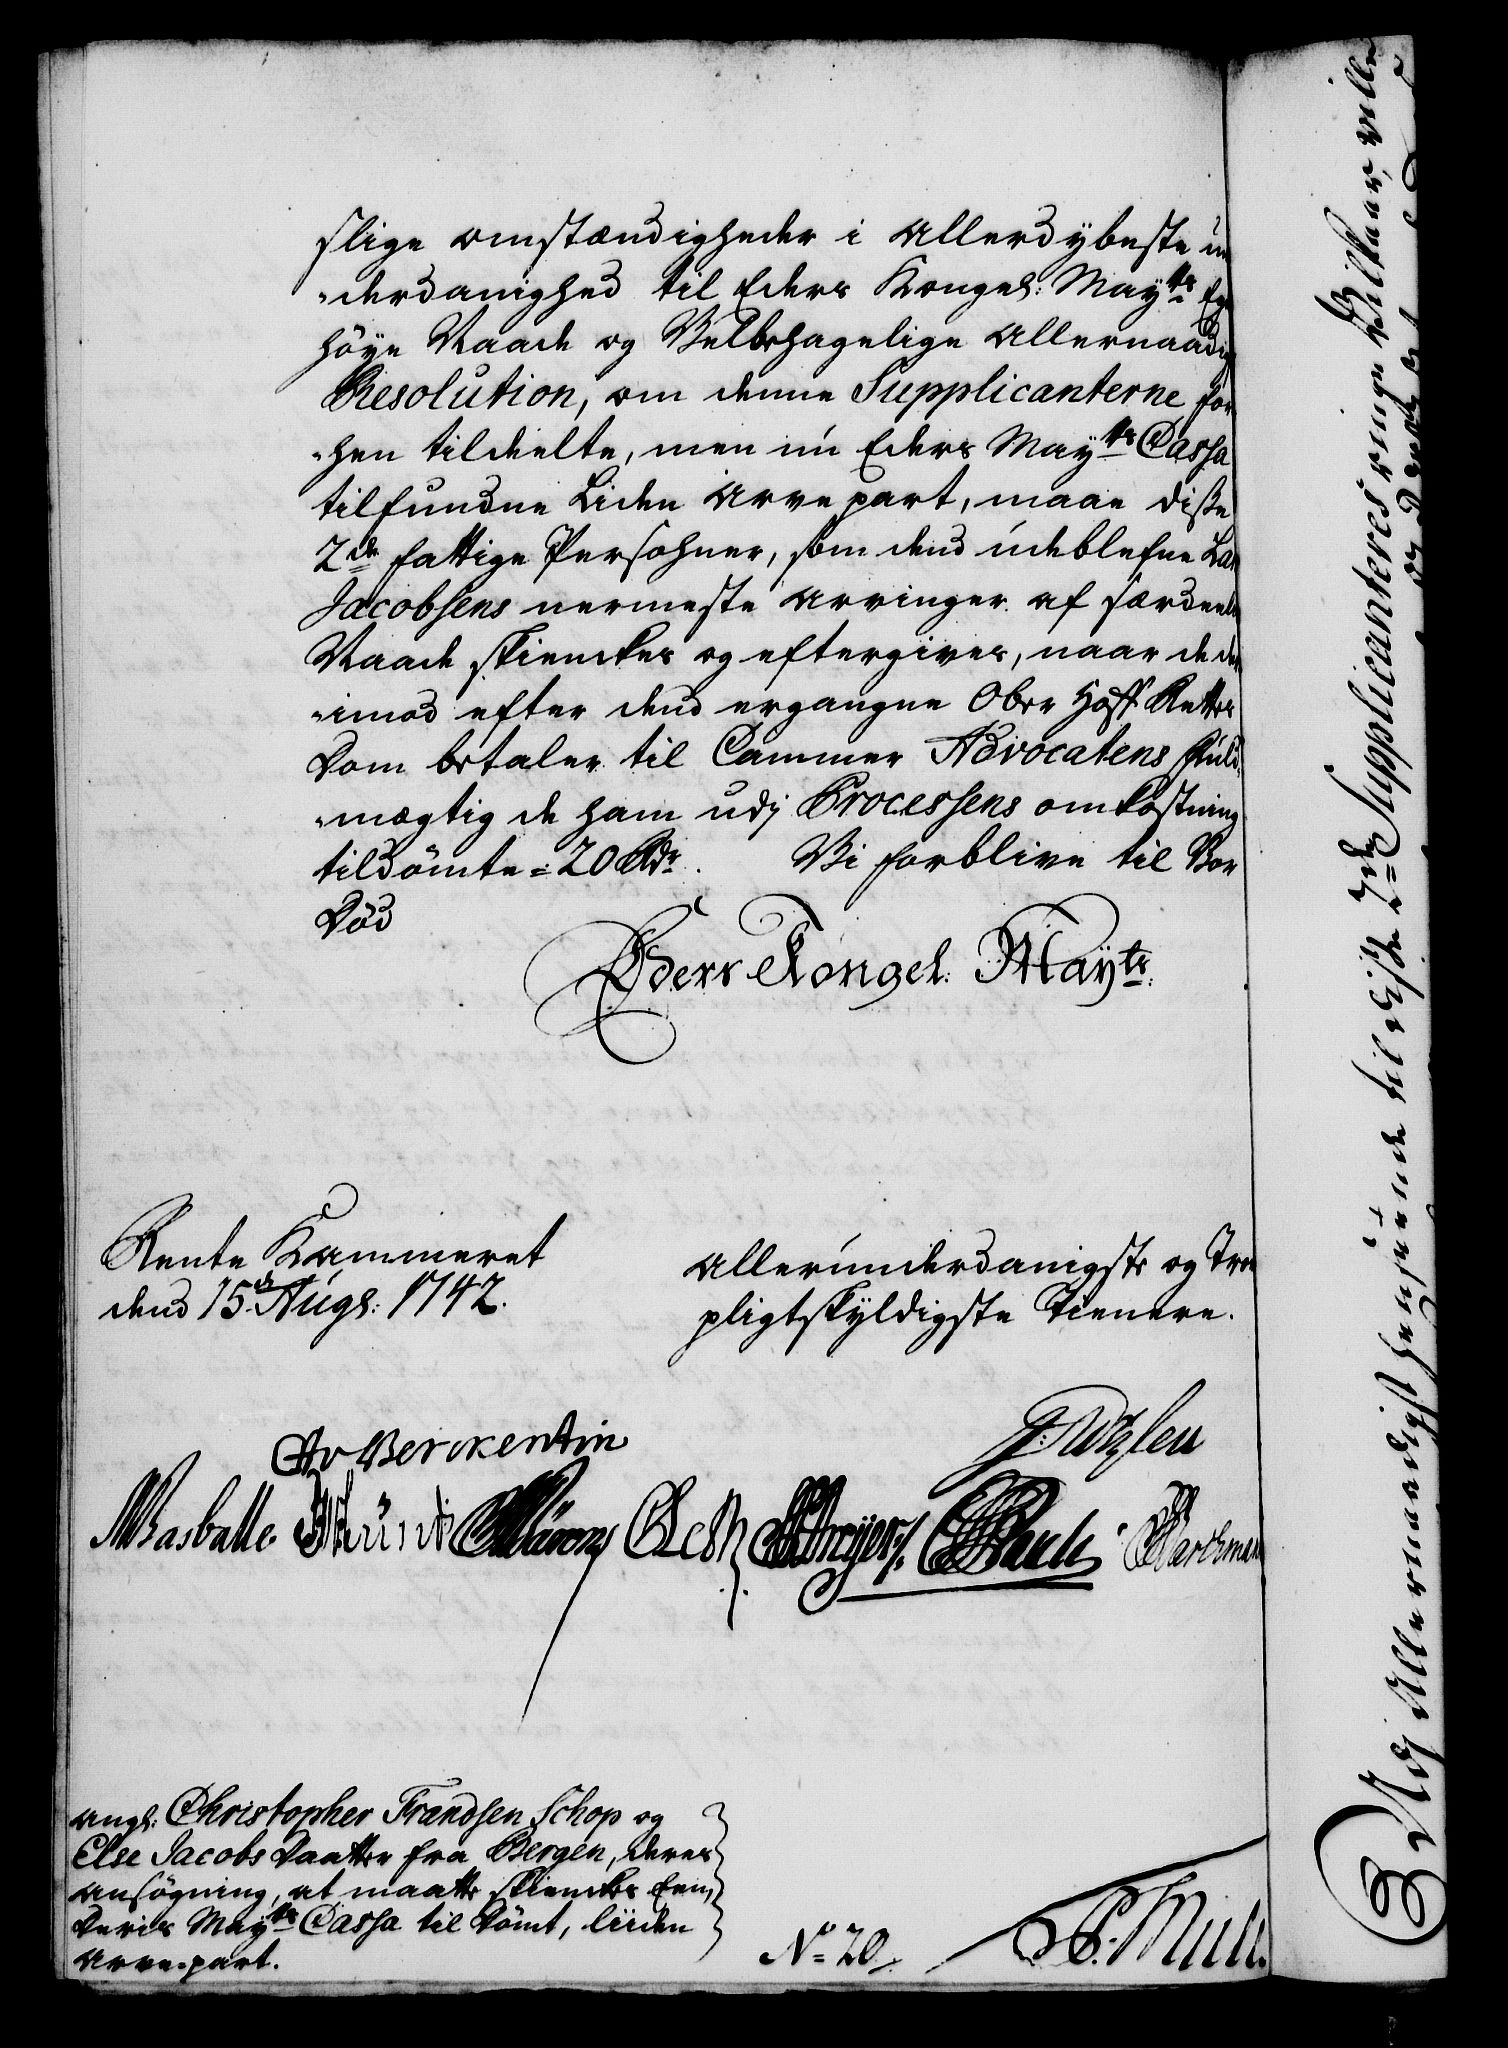 slige omstændigheder i Allerdybeste un
-derdanighed til Eders Kongel: Mayts Eg
höye Naade og Velbehagelige Allernaadig
Resolution, om denne Supplicanterne for
-hen tildeelte, men nú Eders Mayts Cassa
tilfundne Liden Arve part, maae diße
2de fattige Persohner, som dend údeblefne Lar
Jacobsens nermeste Arvinger af særdeele
Naade skienckes og eftergives, naar de der
-imod efter dend ergangne Ober Hoff Rettes
Dom betaler til Cammer Advocatens fúld
-mægtig de ham udj Processens omkostning
tildömte = 20 Rdr. Vi forblive til Vor
Död
Eders Kongel. Mayts.
Rente Kammeret
dend 15de Aúgs: 1742.
Allerúnderdanigste og Troe
pligtskÿldigste Tienere.
Berckentin
Basballe
Barthman
angl: Christopher Frandsen Schop og
Else Jacobs Daatter fra Bergen, deres
ansögning, at maatte skienckes Een,
Deris Mayts Cassa til Dömt, liiden
Arve-part.
No 20
Udj Allernaadigst hensiúnde til diße 2de Supplicanteres ringe Vilkaar, ville